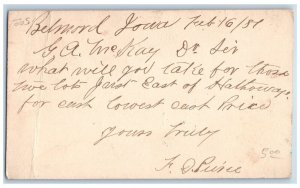 Belmond Iowa Feb 16/81
G. A. McKay Dr Sir
What will you take for those
two lots Just East of Hathaways
for cash lowest cash Price
Yours Truly
F. D.
5.00